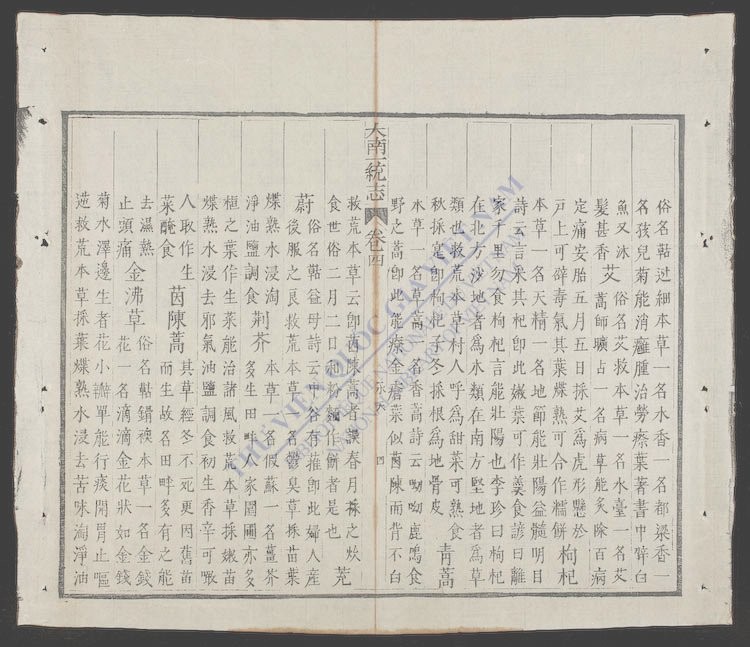 俗名𦵚过細本草一名水香一名都梁香一
名孩兒菊能消癰腫治勞瘵葉著書中辟白
魚又沐艾俗名艾救本草一名水臺一名艾
髮甚香蒿師曠占一名病草能炙除百病
定痛安胎五月五日採艾爲虎形懸於
戸上可辟毒氣其葉煠熟可合作糯餅枸杞
本草一名天精一名地節能壯陽益髓明目
詩云言采其杞卽此嫩葉可作羹食諺曰離
家千里勿食枸杞言能壯陽也李珍曰枸杞
在北方沙地者爲木類在南方堅地者爲草
類也救荒本草村人呼爲甜菜可熟食青蒿
秋採寔卽枸杞子冬採根爲地骨皮
本草一名草蒿一名香蒿詩云呦呦鹿鳴食
野之蒿卽此能療金瘡葉似茵陳而背不白
大南一統志 卷四 四
救荒本草云卽茵陳蒿者誤春月採之炊
食世俗二月二日和粉麵作餅者是也茺
蔚俗名𦵚益母詩云中谷有蓷卽此婦人産
後服之良救荒本草一名鬱臭草採苗葉
煠熟水浸淘荆芥本草一名假蘇一名薑芥
淨油鹽調食多生田畔人家園圃亦多
植之葉作生菜能治諸風救荒本草採嫩苗
煠熟水浸去邪氣油鹽調食初生香辛可噉
人取作生茵陳蒿其草經冬不死更因舊苗
菜醃食而生故名田畔多有之能
去濕熱金沸草俗名𦵚鐟襖本草一名金錢
止頭痛花一名滴滴金花狀如金錢
菊水澤邊生者花小瓣單能行痰開胃止嘔
逆救荒本草採葉煠熟水浸去苦味淘淨油
THƯ VIỆN QUỐC GIA VIỆT NAM